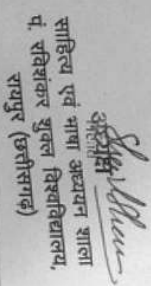 अध्यक्ष
साहित्य एवं भाषा अध्ययन शाला
पं. रविशंकर शुक्ल विश्वविद्यालय,
रायपुर (छत्तीसगढ़)